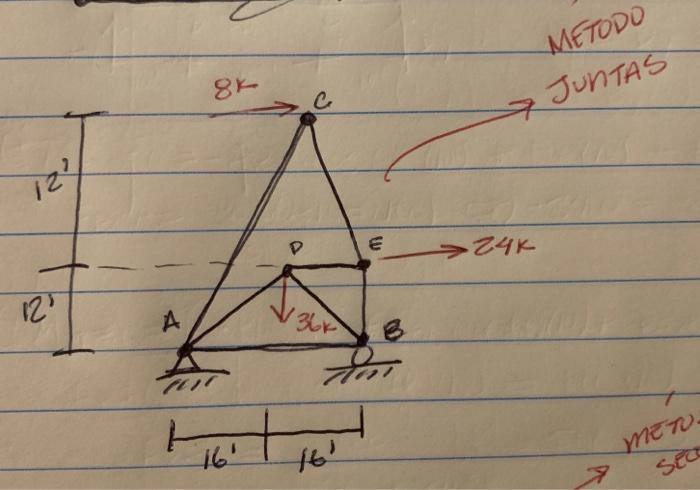 MÉTODO
JUNTAS
8K
C
12'
D
E
24K
12'
A
36K
B
16'
16'